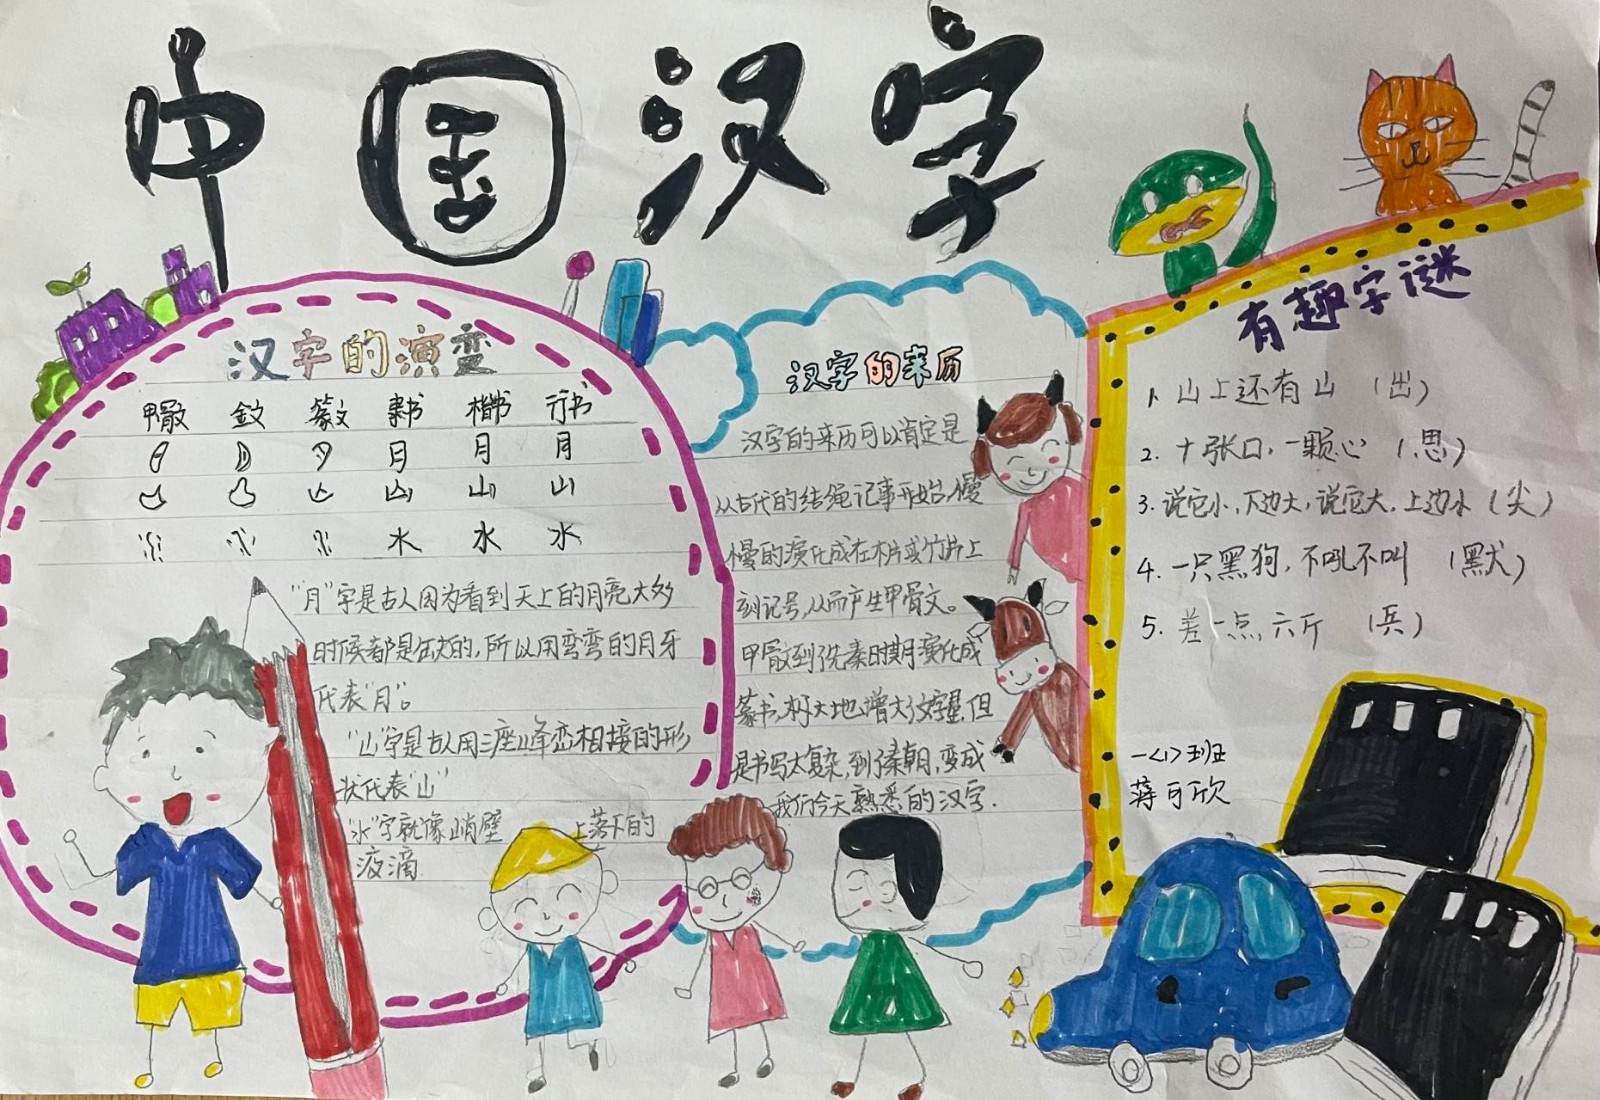 中国汉字
汉字的演变
甲骨文 金文 篆文 隶书 楷书 行书
月 月 月
山 山 山
水 水 水
"月"字是古人因为看到天上的月亮大多
时候都是缺的,所以用弯弯的月牙
代表"月"。
"山"字是古人用三座山峰峦相接的形
状代表"山"
"水"字就像峭壁上落下的
液滴
汉字的来历
汉字的来历可以肯定是
从古代的结绳记事开始,慢
慢的演化成在木片或竹片上
刻记号,从而产生甲骨文。
甲骨文到先秦时期演化成
篆书,极大地增大文字量,但
是书写太复杂,到秦朝,变成
我们今天熟悉的汉字.
有趣字谜
1. 山上还有山 (出)
2. 十张口,一颗心 (思)
3. 说它小,下边大,说它大,上边小 (尖)
4. 一只黑狗,不吼不叫 (默)
5. 差一点六斤 (兵)
一<1>班
蒋可欣